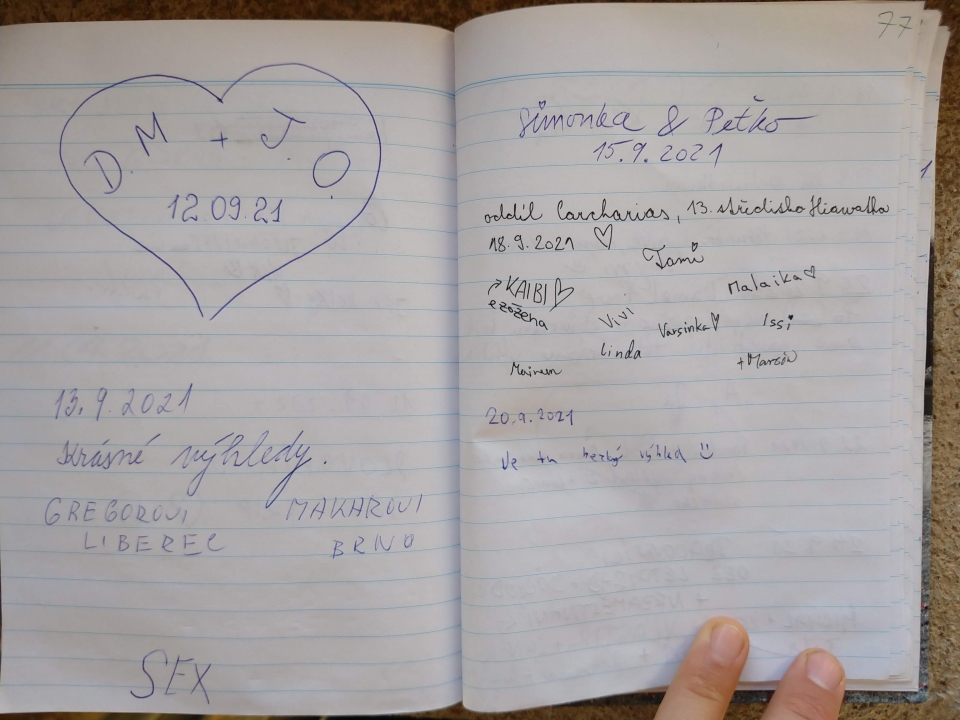 D. M + J. O.
12.09.21
13.9.2021
Krásné výhledy.
GREGOROVI MAKAROVI
LIBEREC BRNO
SEX
77
Simonka & Peťko
15.9.2021
oddíl Carcharias, 13. středisko Hiawatha
18.9.2021
Tami
KAIBI
Malaika
Vivi
Varsinka
Issi
Linda
20.9.2021
Je tu hezký výhled